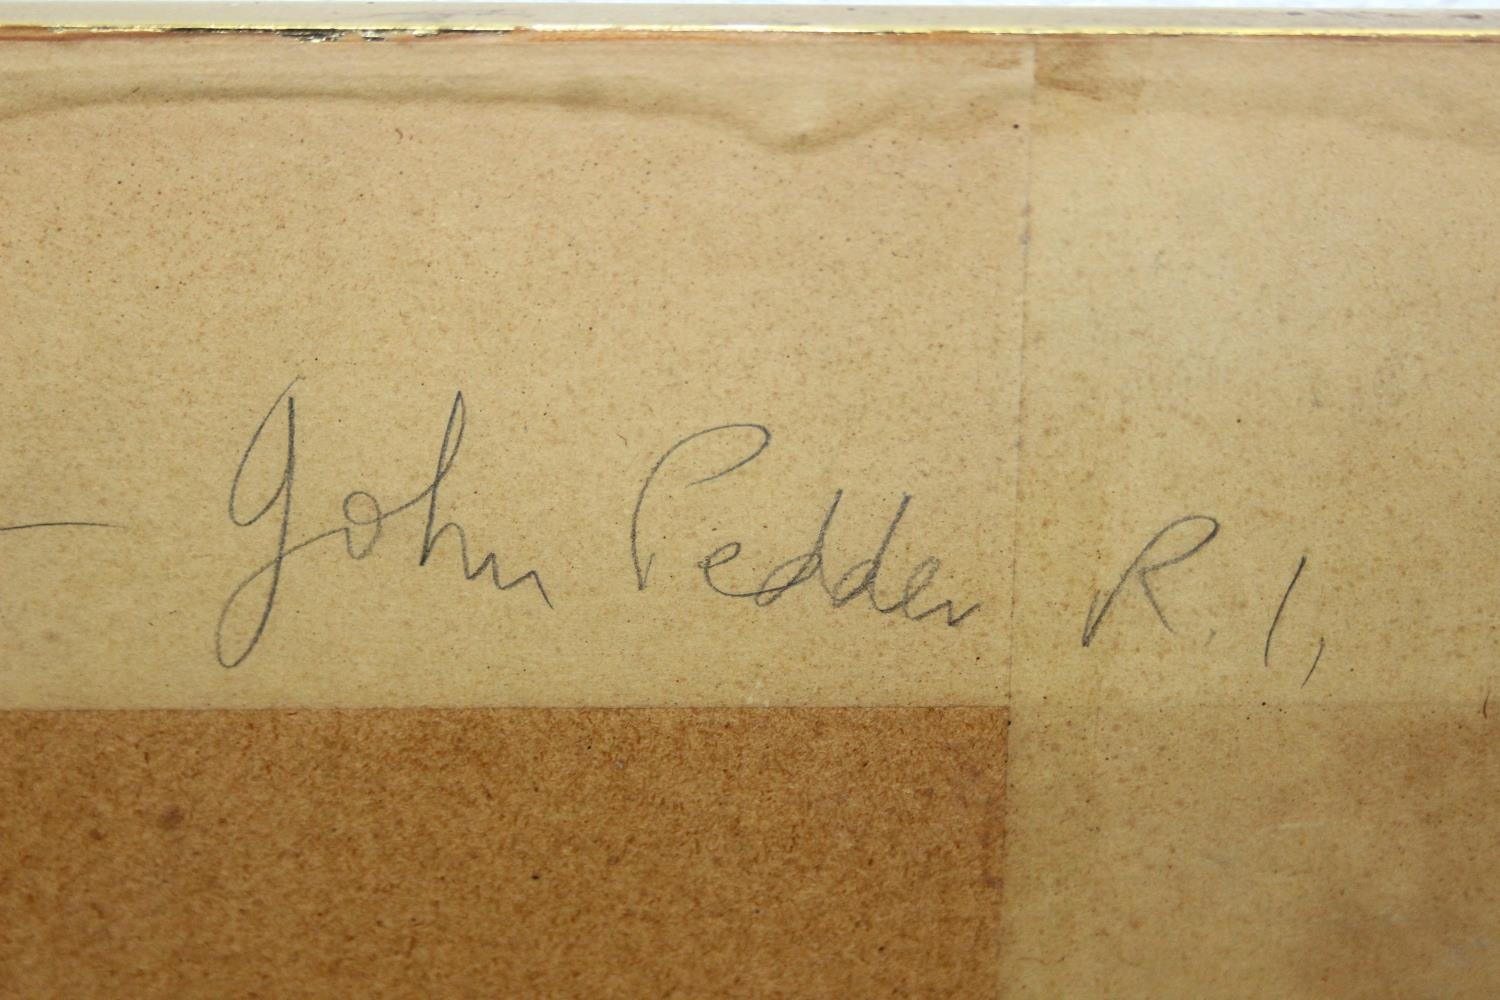 — John Pedder R.I,